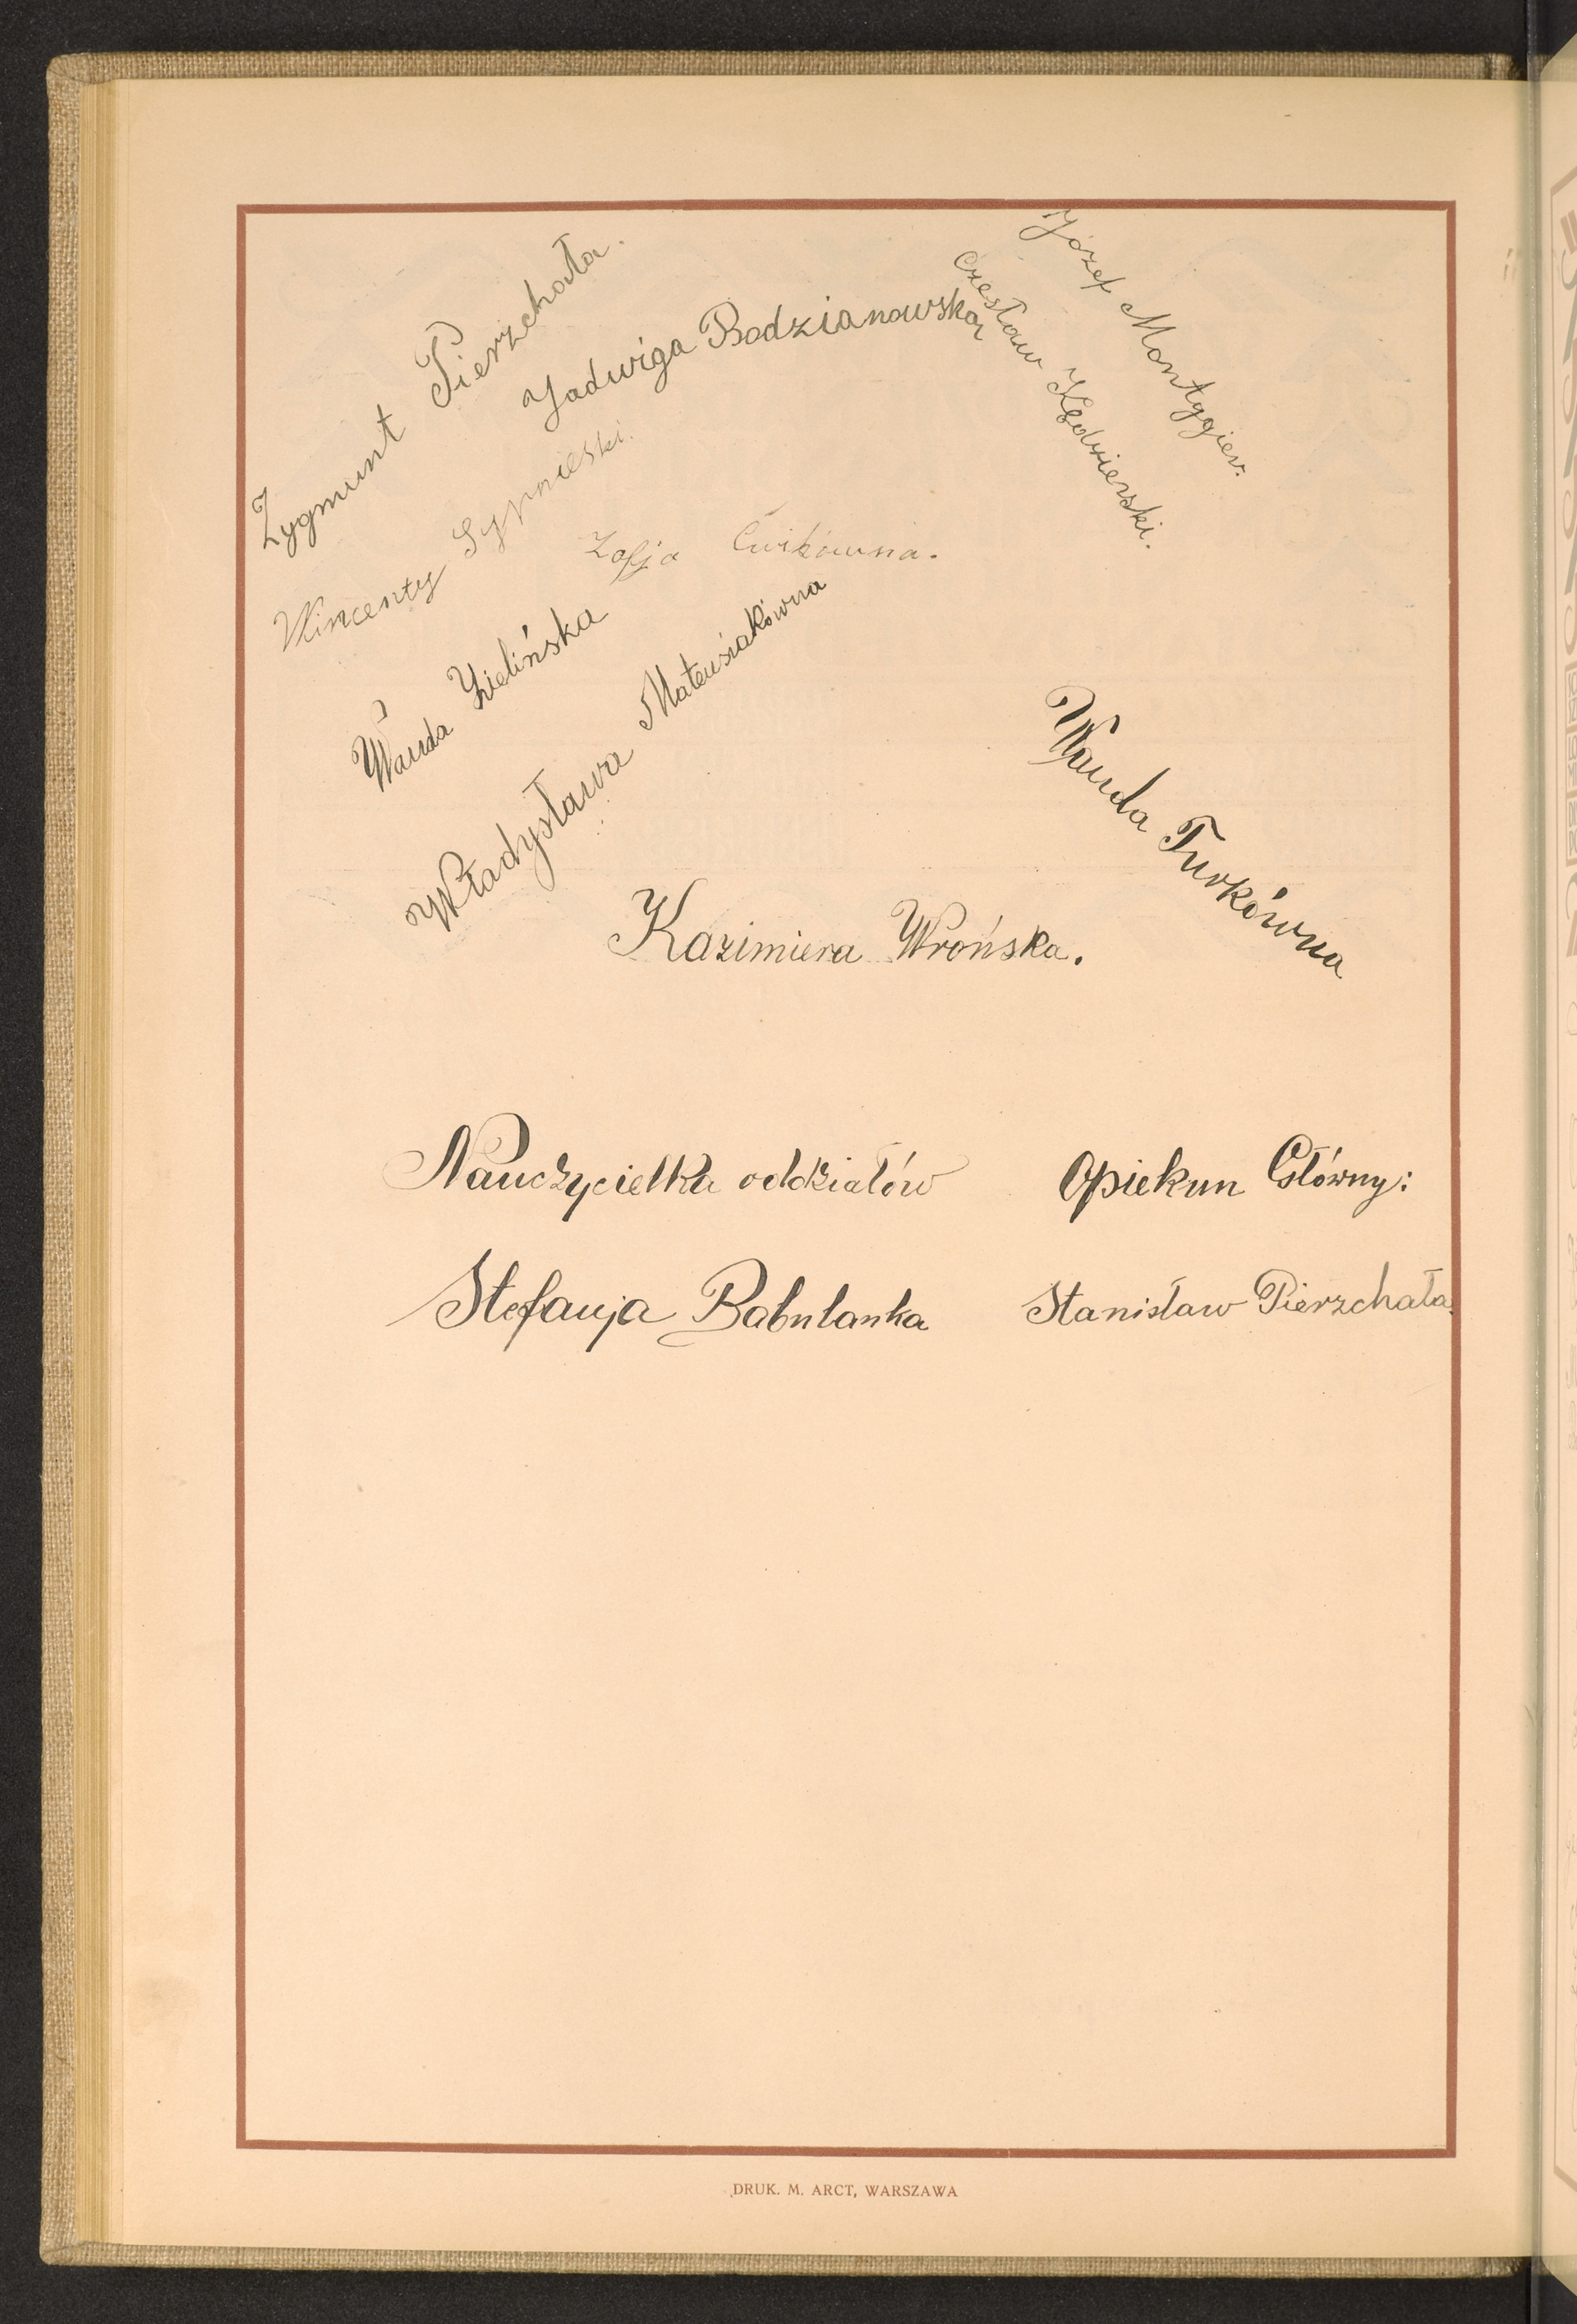 Zygmunt Pierzchała.
Jadwiga Bodzianowska
Czesław Kędzierski.
Józef Montggier.
Wincenty Sypnieski.
Zofja Ćwikówna.
Wanda Zielińska
Władysława Mateusiakówna
Wanda Turkówna
Kazimiera Wrońska.
Nauczycielka oddziałów
Opiekun Główny:
Stefanja Babulanka
Stanisław Pierzchała.
DRUK. M. ARCT, WARSZAWA